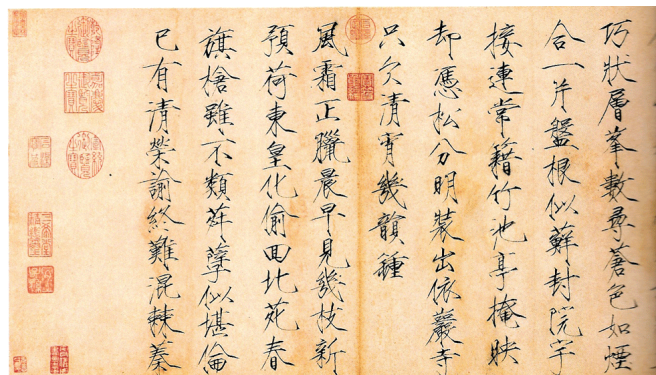 巧狀層峯數尋蒼色如煙
合一片盤根似蘚封院宇
接連常籍竹池亭掩映
却憑松分明裝出依巖寺
只欠清宵幾韻鍾
風霜正臘晨早見幾枝新
預荷東皇化偷回北苑春
旗槍雖不類荈孽似堪倫
已有清榮諭終難混棘蓁